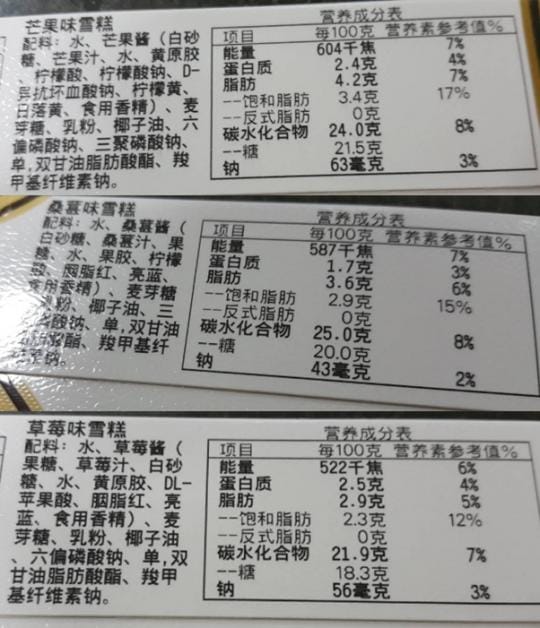 芒果味雪糕
配料：水、芒果酱（白砂
糖、芒果汁、水、黄原胶
、柠檬酸、柠檬酸钠、D-
异抗坏血酸钠、柠檬黄、
日落黄、食用香精）、麦
芽糖、乳粉、椰子油、六
偏磷酸钠、三聚磷酸钠、
单,双甘油脂肪酸酯、羧
甲基纤维素钠。
营养成分表
项目 每100克 营养素参考值%
能量 604千焦 7%
蛋白质 2.4克 4%
脂肪 4.2克 7%
--饱和脂肪 3.4克 17%
--反式脂肪 0克
碳水化合物 24.0克 8%
--糖 21.5克
钠 63毫克 3%
桑葚味雪糕
配料：水、桑葚酱（
白砂糖、桑葚汁、果
糖、水、果胶、柠檬
酸、胭脂红、亮蓝、
食用香精）、麦芽糖
乳粉、椰子油、三
酸钠、单,双甘油
酸酯、羧甲基纤
钠。
营养成分表
项目 每100克 营养素参考值%
能量 587千焦 7%
蛋白质 1.7克 3%
脂肪 3.6克 6%
--饱和脂肪 2.9克 15%
--反式脂肪 0克
碳水化合物 25.0克 8%
--糖 20.0克
钠 43毫克 2%
草莓味雪糕
配料：水、草莓酱（
果糖、草莓汁、白砂
糖、水、黄原胶、DL-
苹果酸、胭脂红、亮
蓝、食用香精）、麦
芽糖、乳粉、椰子油
、六偏磷酸钠、单,双
甘油脂肪酸酯、羧甲
基纤维素钠。
营养成分表
项目 每100克 营养素参考值%
能量 522千焦 6%
蛋白质 2.5克 4%
脂肪 2.9克 5%
--饱和脂肪 2.3克 12%
--反式脂肪 0克
碳水化合物 21.9克 7%
--糖 18.3克
钠 56毫克 3%